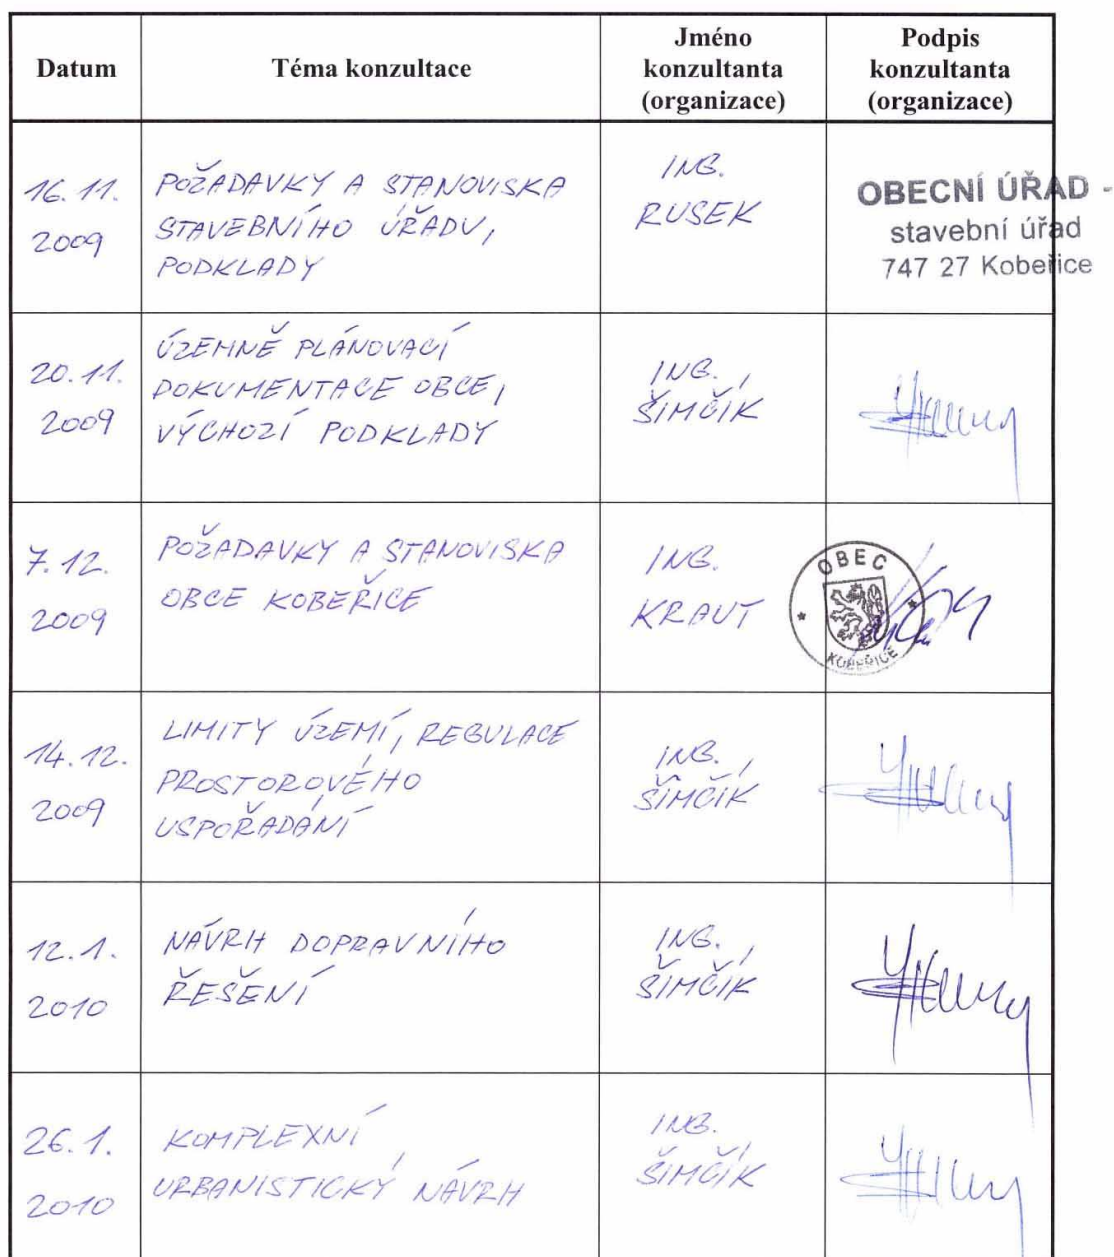 Datum
Téma konzultace
Jméno
konzultanta
(organizace)
Podpis
konzultanta
(organizace)
16. 11.
2009
POŽADAVKY A STANOVISKA
STAVEBNÍHO ÚŘADU,
PODKLADY
ING.
RUSEK
OBECNÍ ÚŘAD -
stavební úřad
747 27 Kobeřice
20. 11.
2009
ÚZEMNĚ PLÁNOVACÍ
DOKUMENTACE OBCE,
VÝCHOZÍ PODKLADY
ING.
ŠIMČÍK
7. 12.
2009
POŽADAVKY A STANOVISKA
OBCE KOBEŘICE
ING.
KRAUT
OBEC
KOBEŘICE
14. 12.
2009
LIMITY ÚZEMÍ, REGULACE
PROSTOROVÉHO
USPOŘÁDÁNÍ
ING.
ŠIMČÍK
12. 1.
2010
NÁVRH DOPRAVNÍHO
ŘEŠENÍ
ING.
ŠIMČÍK
26. 1.
2010
KOMPLEXNÍ
URBANISTICKÝ NÁVRH
ING.
ŠIMČÍK